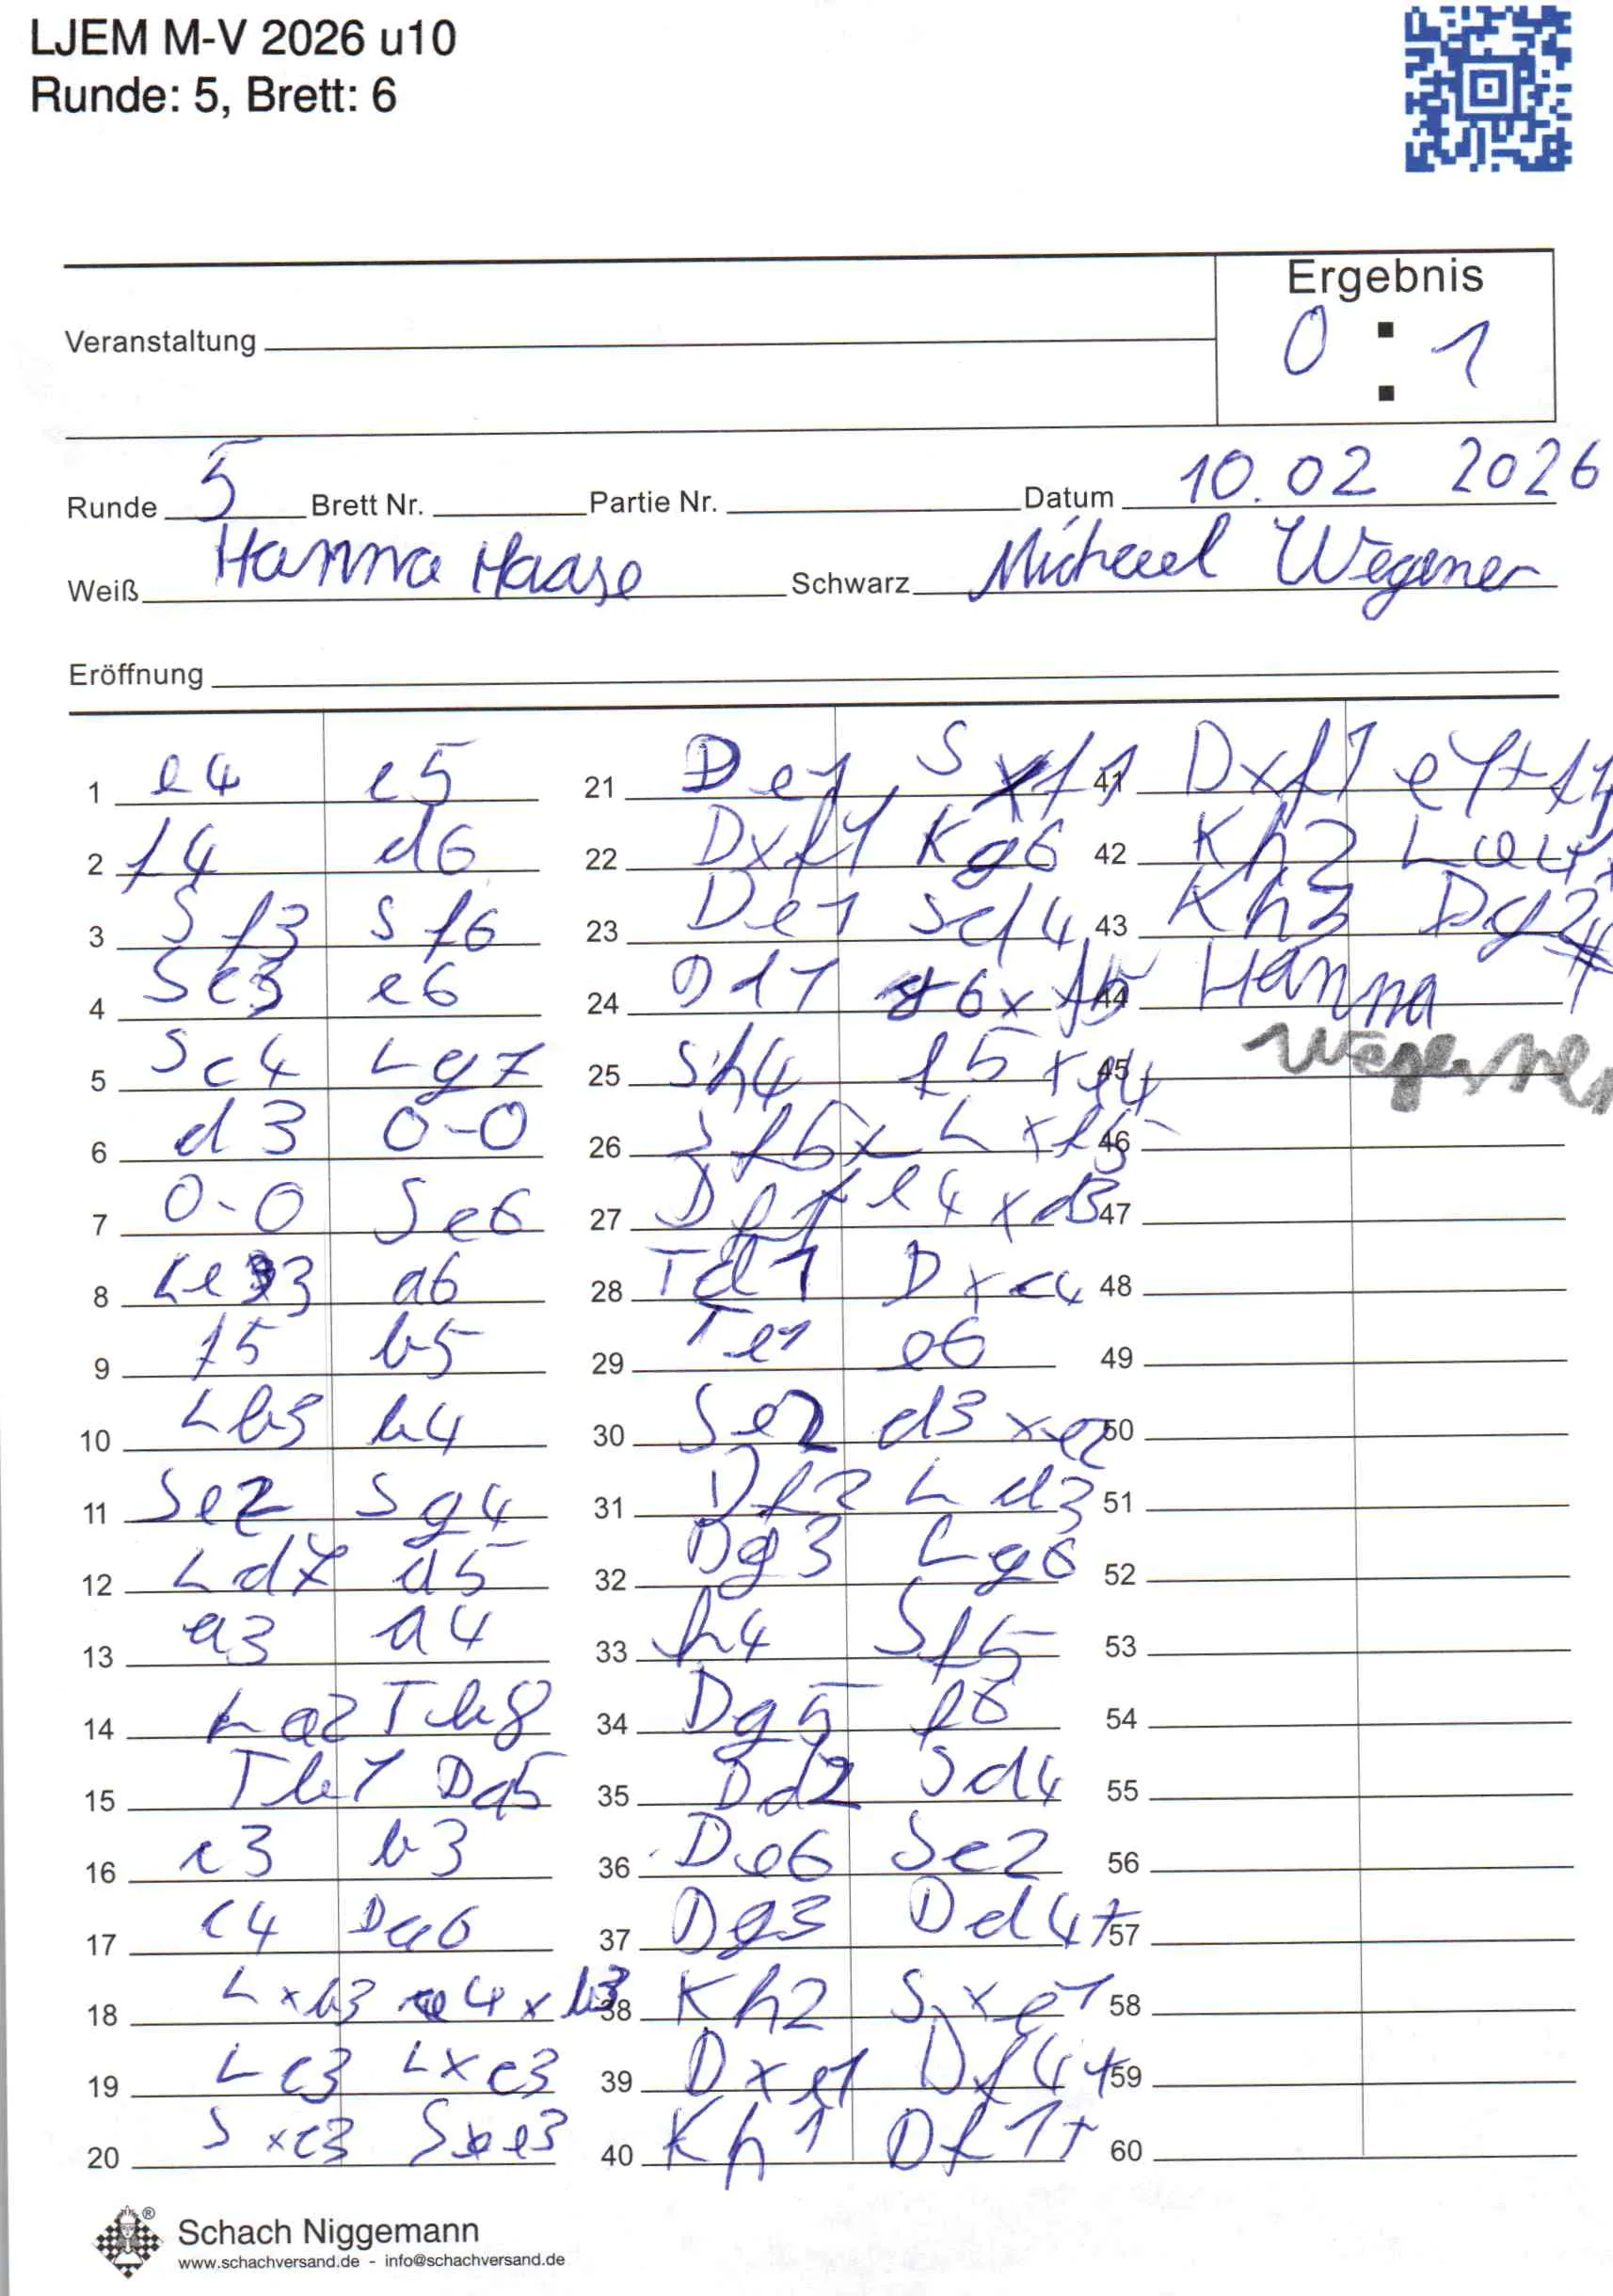 LJEM M-V 2026 u10
Runde: 5, Brett: 6
Ergebnis
0 : 1
Veranstaltung
Runde 5 Brett Nr. Partie Nr. Datum 10.02 2026
Weiß Hanna Haase Schwarz Michael Wegener
Eröffnung
1 e4 e5
2 f4 d6
3 Sf3 Sf6
4 Sc3 e6
5 Sc4 Lg7
6 d3 0-0
7 0-0 Sc6
8 Le3 a6
9 f5 b5
10 Lb3 b4
11 Se2 Sg4
12 Ld7 a5
13 a3 a4
14 La2 Tb8
15 Tb1 Da5
16 c3 b3
17 c4 Da6
18 Lxb3 a4xb3
19 Lc3 Lxc3
20 Sxc3 Sxe3
21 De1 Sxf1
22 Dxf1 Kg6
23 De1 Sd4
24 Df1 g6xf5
25 Sh4 f5xe4
26 Sf5x Lxf5
27 Df1x e4xd3
28 Td1 Dxc4
29 Te1 e6
30 Se2 d3xe2
31 Df2 Ld3
32 Dg3 Lg6
33 h4 Sf5
34 Dg5 f6
35 Dd2 Sd4
36 De6 Sc2
37 Dg3 Dd4+
38 Kh2 Sxe1
39 Dxe1 Df4+
40 Kh1 Df1+
41 Dxf1 
42 Kh2 
43 Kh3 Dg2#
44 Hanna
45 Wegener
46
47
48
49
50
51
52
53
54
55
56
57
58
59
60
Schach Niggemann
www.schachversand.de - info@schachversand.de